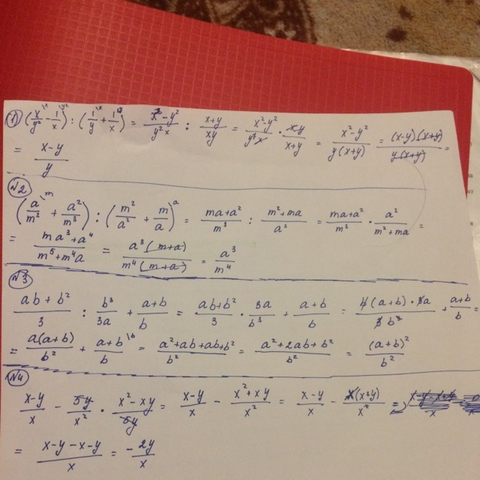 1) (x/y² - 1/x) : (1/y + 1/x) = x² - y²/y²x : x+y/xy = x² - y²/y²x · xy/x+y = x² - y²/y(x+y) = (x-y)(x+y)/y(x+y) =
= x-y/y
№2
(a/m² + a²/m³) : (m²/a² + m/a) = ma+a²/m³ : m²+ma/a² = ma+a²/m³ · a²/m²+ma =
= ma³+a⁴/m⁵+m⁴a = a³(m+a)/m⁴(m+a) = a³/m⁴
№3
ab+b²/3 : b³/3a + a+b/b = ab+b²/3 · 3a/b³ + a+b/b = b(a+b)·3a/3b³ + a+b/b =
= a(a+b)/b² + a+b/b = a²+ab+ab+b²/b² = a²+2ab+b²/b² = (a+b)²/b²
№4
x-y/x - 5y/x² · x²-xy/5y = x-y/x - x²+xy/x² = x-y/x - x(x+y)/x² =
= x-y-x-y/x = -2y/x